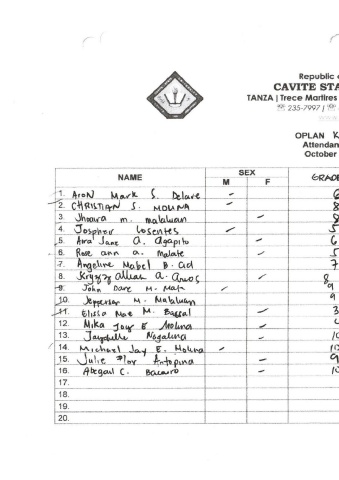 Republic
CAVITE STA
TANZA | Trece Martires
☏ 235-7997 |
www
OPLAN K
Attendan
October
NAME SEX GRADE
M F
1. Aron Mark S. Delare - 6
2. CHRISTIAN S. MOLINA - 8
3. Jhoara m. malaluan - 8
4. Jospher Losentes - 5
5. Ara Jane A. Agapito - 6
6. Rose ann a. malate - 5
7. Angeline Mabel B. - 7
8. Allian A. - 8
9. John Dave M. Mata - 9
10. Jepperson M. Malaluan 9
11. Elissa Mae M. Bassal - 3
12. Mika Joy E Molina -
13. Jaydelle Nogalina - 10
14. Michael Jay E. Molina - 10
15. Julie Flor Antopina - 9
16. Abegail C. Bacaro - 10
17.
18.
19.
20.